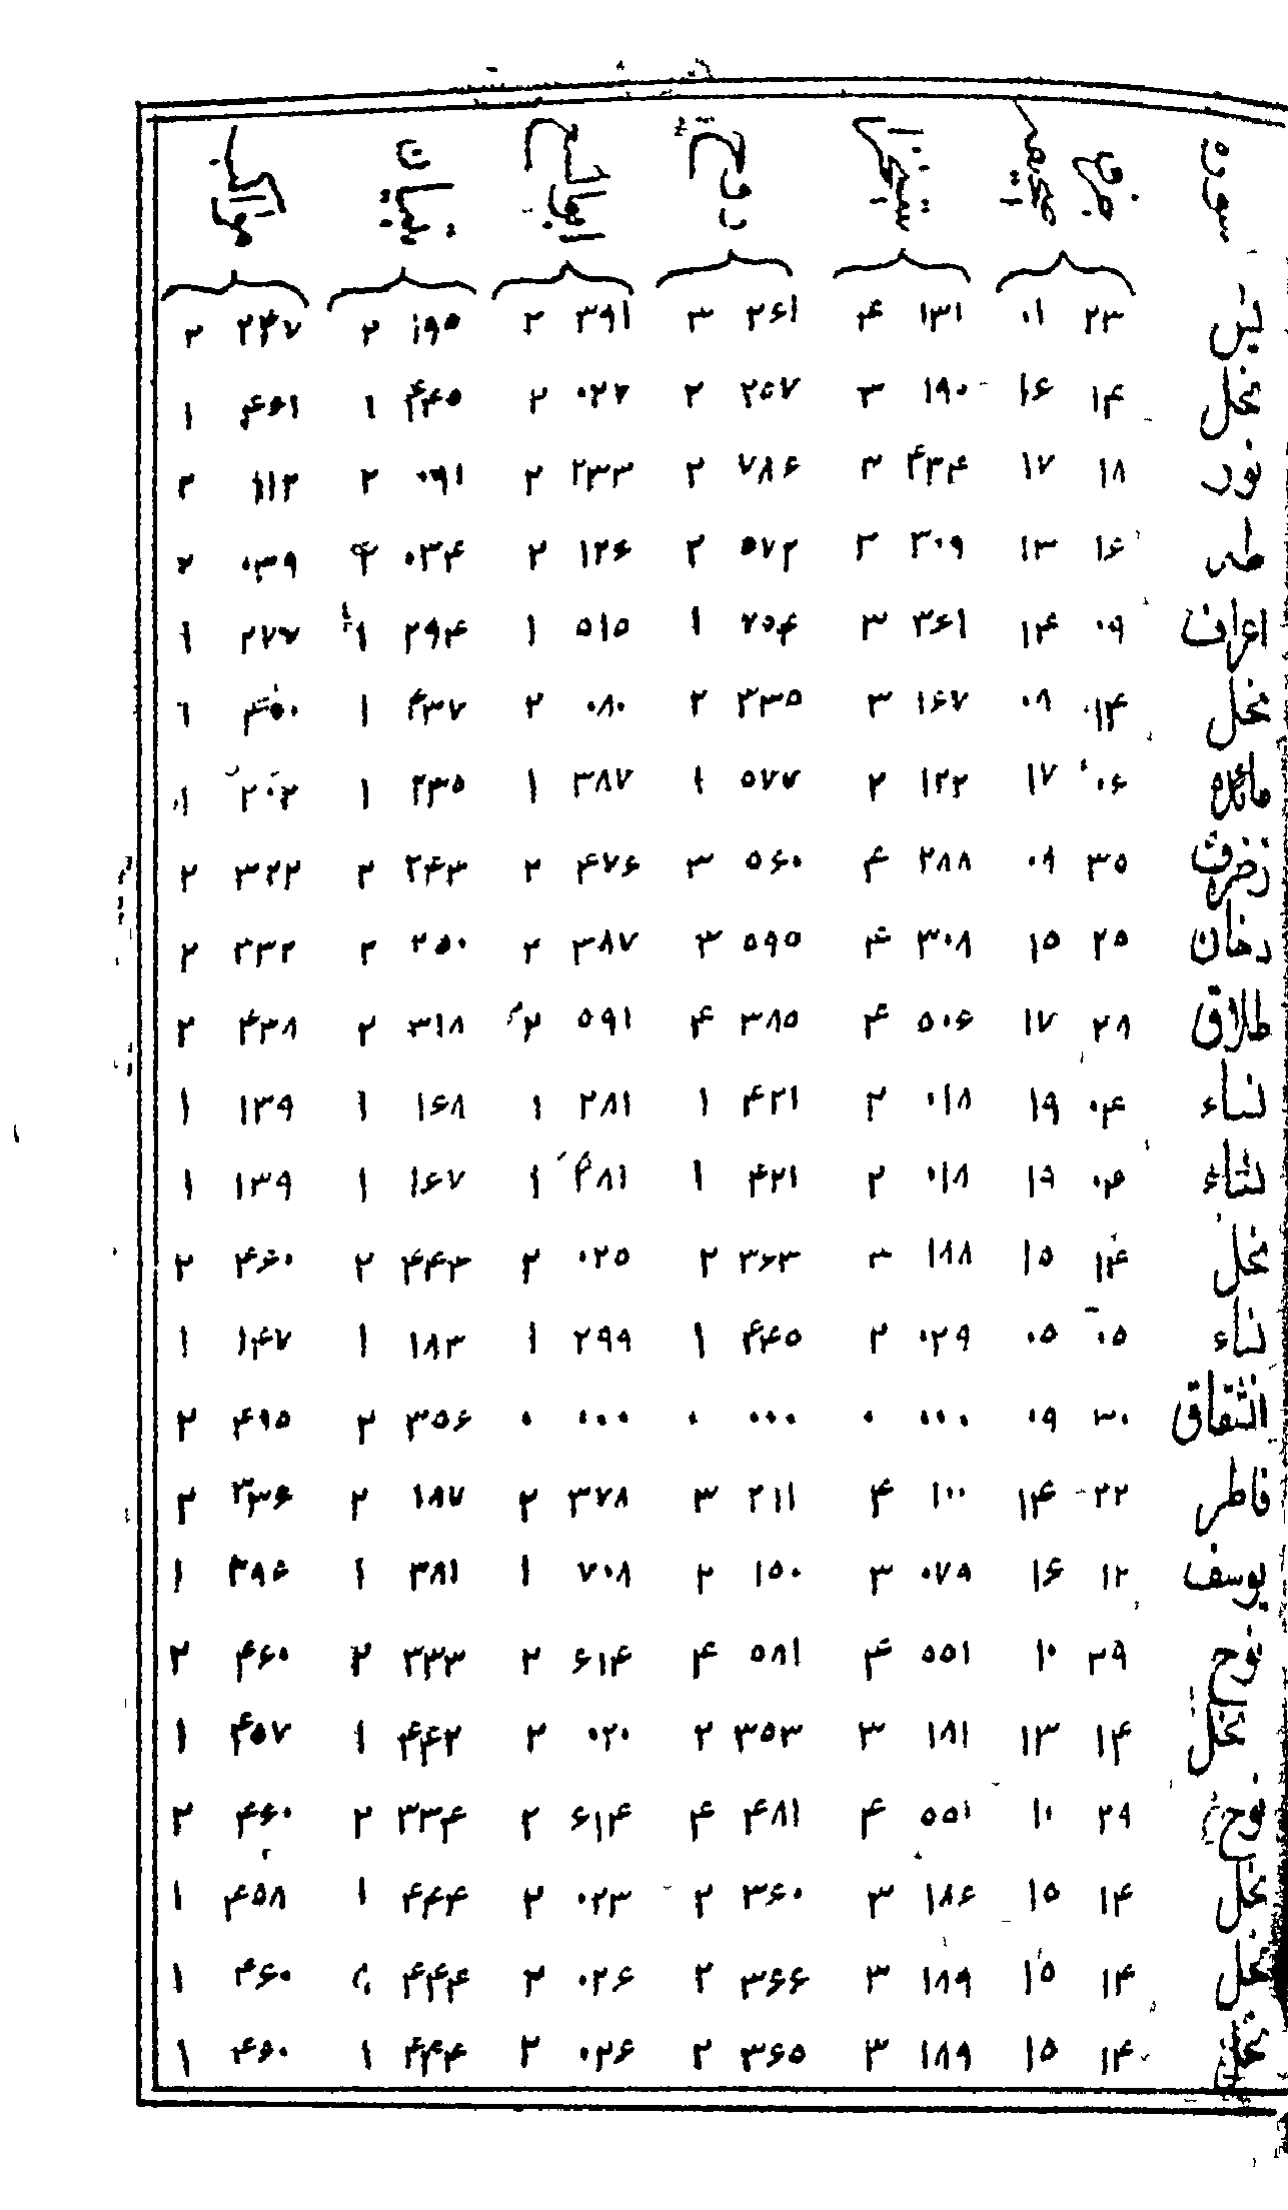 سوره
یس ۲۳ ۰۱ ۱۳۱ ۴ ۲۶۱ ۳ ۳۹۱ ۲ ۱۹۵ ۲ ۲۴۷ ۲
نحل ۱۴ ۱۶ ۱۹۰ ۳ ۲۶۷ ۲ ۰۲۷ ۲ ۴۴۵ ۱ ۴۶۱ ۱
نور ۱۸ ۱۷ ۴۳۴ ۳ ۷۸۶ ۲ ۲۳۳ ۲ ۰۹۱ ۲ ۱۱۲ ۲
طه ۱۶ ۱۳ ۳۰۹ ۳ ۵۷۲ ۲ ۱۲۶ ۲ ۰۳۴ ۰۳۹ ۲
اعراف ۰۹ ۱۴ ۳۶۱ ۳ ۷۵۴ ۱ ۵۱۵ ۱ ۲۹۴ ۱ ۲۷۷ ۱
نحل ۱۴ ۰۸ ۱۶۷ ۳ ۳۳۵ ۲ ۰۸۰ ۲ ۴۳۷ ۱
مائده ۰۶ ۱۷ ۱۲۲ ۲ ۵۷۷ ۱ ۳۸۷ ۱ ۲۳۵ ۱ ۲۰۲ ۱
زخرف ۳۵ ۰۹ ۲۸۸ ۴ ۵۶۰ ۳ ۴۷۶ ۲ ۲۴۳ ۲ ۳۲۲ ۲
دخان ۲۵ ۱۵ ۳۰۸ ۴ ۵۹۵ ۳ ۳۸۷ ۲ ۲۵۰ ۲ ۳۳۲ ۲
طلاق ۲۸ ۱۷ ۵۰۶ ۴ ۳۸۵ ۴ ۵۹۱ ۲ ۳۱۸ ۲ ۴۳۸ ۲
نساء ۰۴ ۱۹ ۰۱۸ ۲ ۴۲۱ ۱ ۲۸۱ ۱ ۱۶۸ ۱ ۱۳۹ ۱
نساء ۰۴ ۱۹ ۰۱۸ ۲ ۴۲۱ ۱ ۲۸۱ ۱ ۱۶۷ ۱ ۱۳۹ ۱
نحل ۱۴ ۱۵ ۱۸۸ ۳ ۳۶۳ ۲ ۰۲۵ ۲ ۴۴۳ ۲ ۴۶۰ ۲
نساء ۰۵ ۰۵ ۰۲۹ ۲ ۴۴۵ ۱ ۲۹۹ ۱ ۱۸۳ ۱ ۱۴۷ ۱
انشقاق ۳۰ ۰۹ ۰۰۰ ۰ ۰۰۰ ۰ ۰۰۰ ۰ ۳۵۶ ۲ ۴۹۵ ۲
فاطر ۲۲ ۱۴ ۱۰۰ ۴ ۲۱۱ ۳ ۳۷۸ ۲ ۱۸۷ ۲ ۲۳۶ ۲
یوسف ۱۲ ۱۶ ۰۷۹ ۳ ۱۵۰ ۲ ۷۰۸ ۱ ۳۸۱ ۱ ۳۹۶ ۱
نوح ۲۹ ۱۰ ۵۵۱ ۴ ۵۸۱ ۴ ۶۱۴ ۲ ۳۳۳ ۲ ۴۶۰ ۲
نحل ۱۴ ۱۳ ۱۸۱ ۳ ۳۵۳ ۲ ۰۲۰ ۲ ۴۴۲ ۱ ۴۵۷ ۱
نوح ۲۹ ۱۰ ۵۵۱ ۴ ۴۸۱ ۴ ۶۱۴ ۲ ۳۳۴ ۲ ۴۶۰ ۲
نحل ۱۴ ۱۵ ۱۸۶ ۳ ۳۶۰ ۲ ۰۲۳ ۲ ۴۴۴ ۱ ۴۵۸ ۱
نحل ۱۴ ۱۵ ۱۸۹ ۳ ۳۶۶ ۲ ۰۲۶ ۲ ۴۴۴ ۴۶۰ ۱
نحل ۱۴ ۱۵ ۱۸۹ ۳ ۳۶۵ ۲ ۰۲۶ ۲ ۴۴۴ ۱ ۴۶۰ ۱